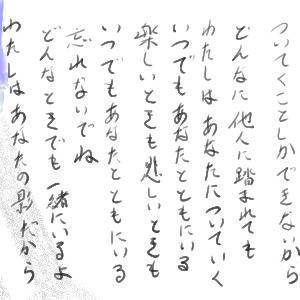 ついてくことしかできないから
どんなに他人に踏まれても
わたしはあなたについていく
いつでもあなたとともにいる
楽しいときも悲しいときも
いつでもあなたとともにいる
忘れないでね
どんなときでも一緒にいるよ
わたしはあなたの影だから